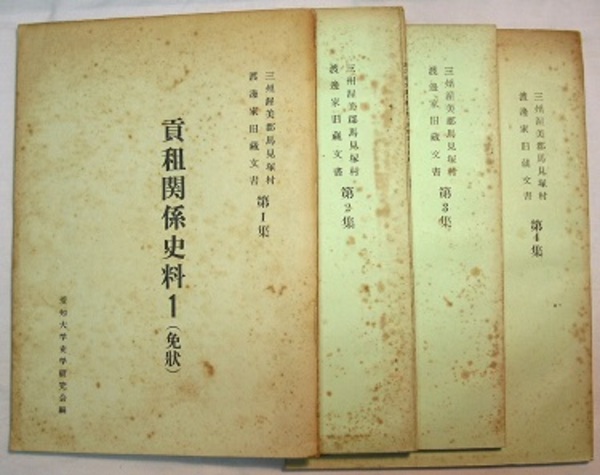 三州渥美郡馬見塚村
渡邊家旧蔵文書 第1集
貢租関係史料1(免状)
愛知大学史学研究会編
三州渥美郡馬見塚村
渡邊家旧蔵文書 第2集
三州渥美郡馬見塚村
渡邊家旧蔵文書 第3集
三州渥美郡馬見塚村
渡邊家旧蔵文書 第4集